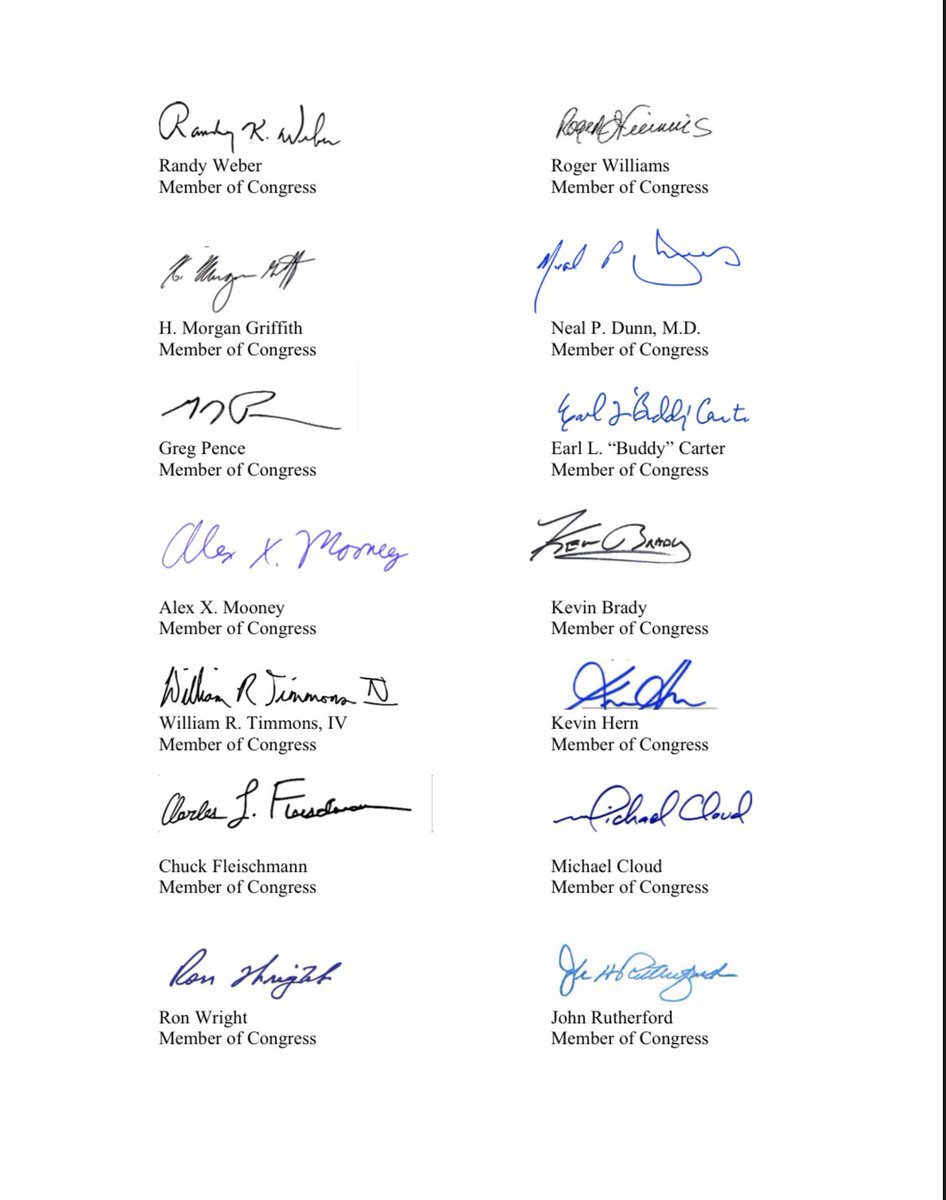 Randy K. Weber
Randy Weber
Member of Congress
Roger Williams
Roger Williams
Member of Congress
H. Morgan Griffith
H. Morgan Griffith
Member of Congress
Neal P. Dunn
Neal P. Dunn, M.D.
Member of Congress
Greg Pence
Member of Congress
Earl L. "Buddy" Carter
Earl L. “Buddy” Carter
Member of Congress
Alex X. Mooney
Alex X. Mooney
Member of Congress
Kevin Brady
Kevin Brady
Member of Congress
William R Timmons IV
William R. Timmons, IV
Member of Congress
Kevin Hern
Member of Congress
Charles J. Fleischmann
Chuck Fleischmann
Member of Congress
Michael Cloud
Michael Cloud
Member of Congress
Ron Wright
Ron Wright
Member of Congress
John H Rutherford
John Rutherford
Member of Congress